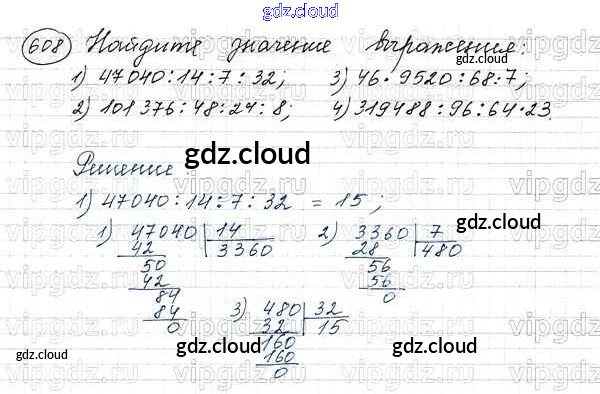 gdz.cloud
608 Найдите значение выражения:
1) 47040:14:7:32; 3) 46·9520:68:7;
2) 101376:48:24:8; 4) 319488:96:64·23.
gdz.cloud
Решение:
1) 47040:14:7:32 = 15;
1) 47040 | 14 2) 3360 | 7
42 3360 28 480
50 56
42 56
84 0
84 3) 480 | 32
0 32 15
160
160
0
gdz.cloud
gdz.cloud
gdz.cloud
gdz.cloud
gdz.cloud
vipgdz.ru